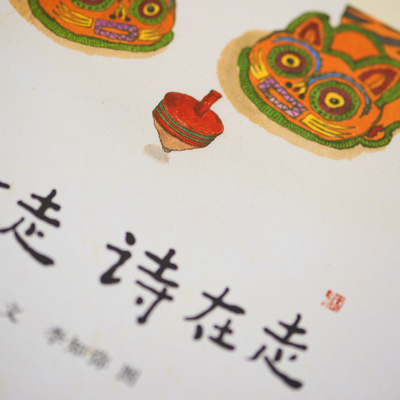 走 诗在走
文 李知弥 图